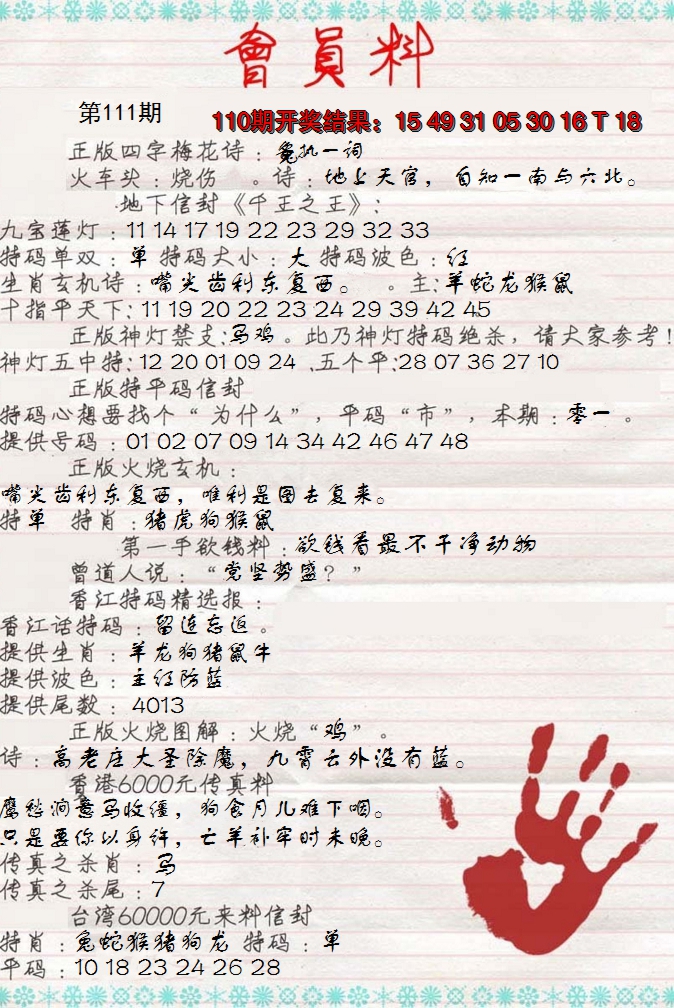 會員料
第111期
110期开奖结果：15 49 31 05 30 16 T 18
正版四字梅花诗：冤执一词
火车头：烧伤 。诗：地上天官，自知一南与六北。
地下信封《千王之王》：
九宝莲灯：11 14 17 19 22 23 29 32 33
特码单双：单 特码大小：大 特码波色：红
生肖玄机诗：嘴尖齿利东复西。 。主：羊蛇龙猴鼠
十指平天下：11 19 20 22 23 24 29 39 42 45
正版神灯禁支：马鸡。此乃神灯特码绝杀，请大家参考！
神灯五中特：12 20 01 09 24 、五个平：28 07 36 27 10
正版特平码信封
特码心想要找个“为什么”，平码“市”，本期：零一 。
提供号码：01 02 07 09 14 34 42 46 47 48
正版火烧玄机：
嘴尖齿利东复西，唯利是图去复来。
特单 特肖：猪虎狗猴鼠
第一手欲钱料：欲钱看最不干净动物
曾道人说：“党坚势盛？”
香江特码精选报：
香江话特码：留连忘返。
提供生肖：羊龙狗猪鼠牛
提供波色：主红防蓝
提供尾数：4013
正版火烧图解：火烧“鸡”。
诗：高老庄大圣除魔，九霄云外没有蓝。
香港6000元传真料
鹰愁涧意马收缰，狗食月儿难下咽。
只是要你以身许，亡羊补牢时未晚。
传真之杀肖：马
传真之杀尾：7
台湾60000元来料信封
特肖：兔蛇猴猪狗龙 特码：单
平码：10 18 23 24 26 28